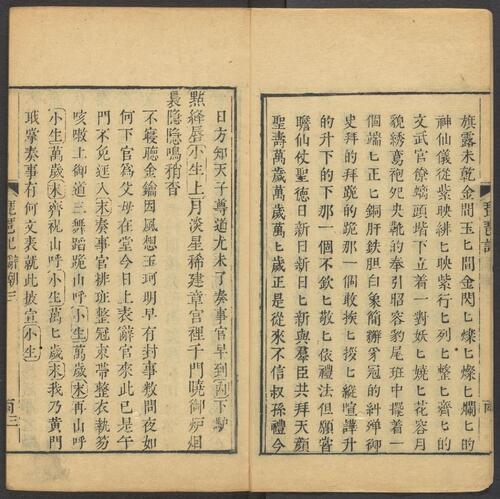 琵琶記
旌露未乾金閃玉ヒ閃金閃ヒ燦ヒ燦ヒ爛ヒ的
神仙儀從紫映緋ヒ映紫行ヒ列ヒ整ヒ齊ヒ的
文武官僚螭頭堦下立着一對妖ヒ嬈ヒ花容月
貌綉鴛袍兜央靴的奉引昭容豹尾班中擺着一
個端ヒ正ヒ銅肝鉄胆白象簡獬豸冠的糾彈御
史拜的拜跪的跪那一個敢挨ヒ拶ヒ縱喧譁升
的升下的下那一個不欽ヒ敬ヒ依禮法但願嘗
瞻仙仗聖德日新日新日ヒ新與羣臣共拜天顏
聖壽萬歲萬歲萬ヒ歲正是從來不信叔孫禮今
日方知天子尊道尤未了奏事官早到下馿
點絳唇小生上月淡星稀建章宮裡千門曉御炉烟
裊隐隐鳴梢杳
不寝聽金鑰因風想玉珂明早有封事數問夜如
何下官為父母在堂今日上表辭官來此已是午
門不免入末奏事官排班整冠束帶整衣執笏
咳嗽上御道三舞蹈跪山呼小生萬歲末再山呼
小生萬歲末齊祝山呼小生萬ヒ歲末我乃黃門
職掌奏事有何文表就此披宣小生
琵琶記 辭朝三